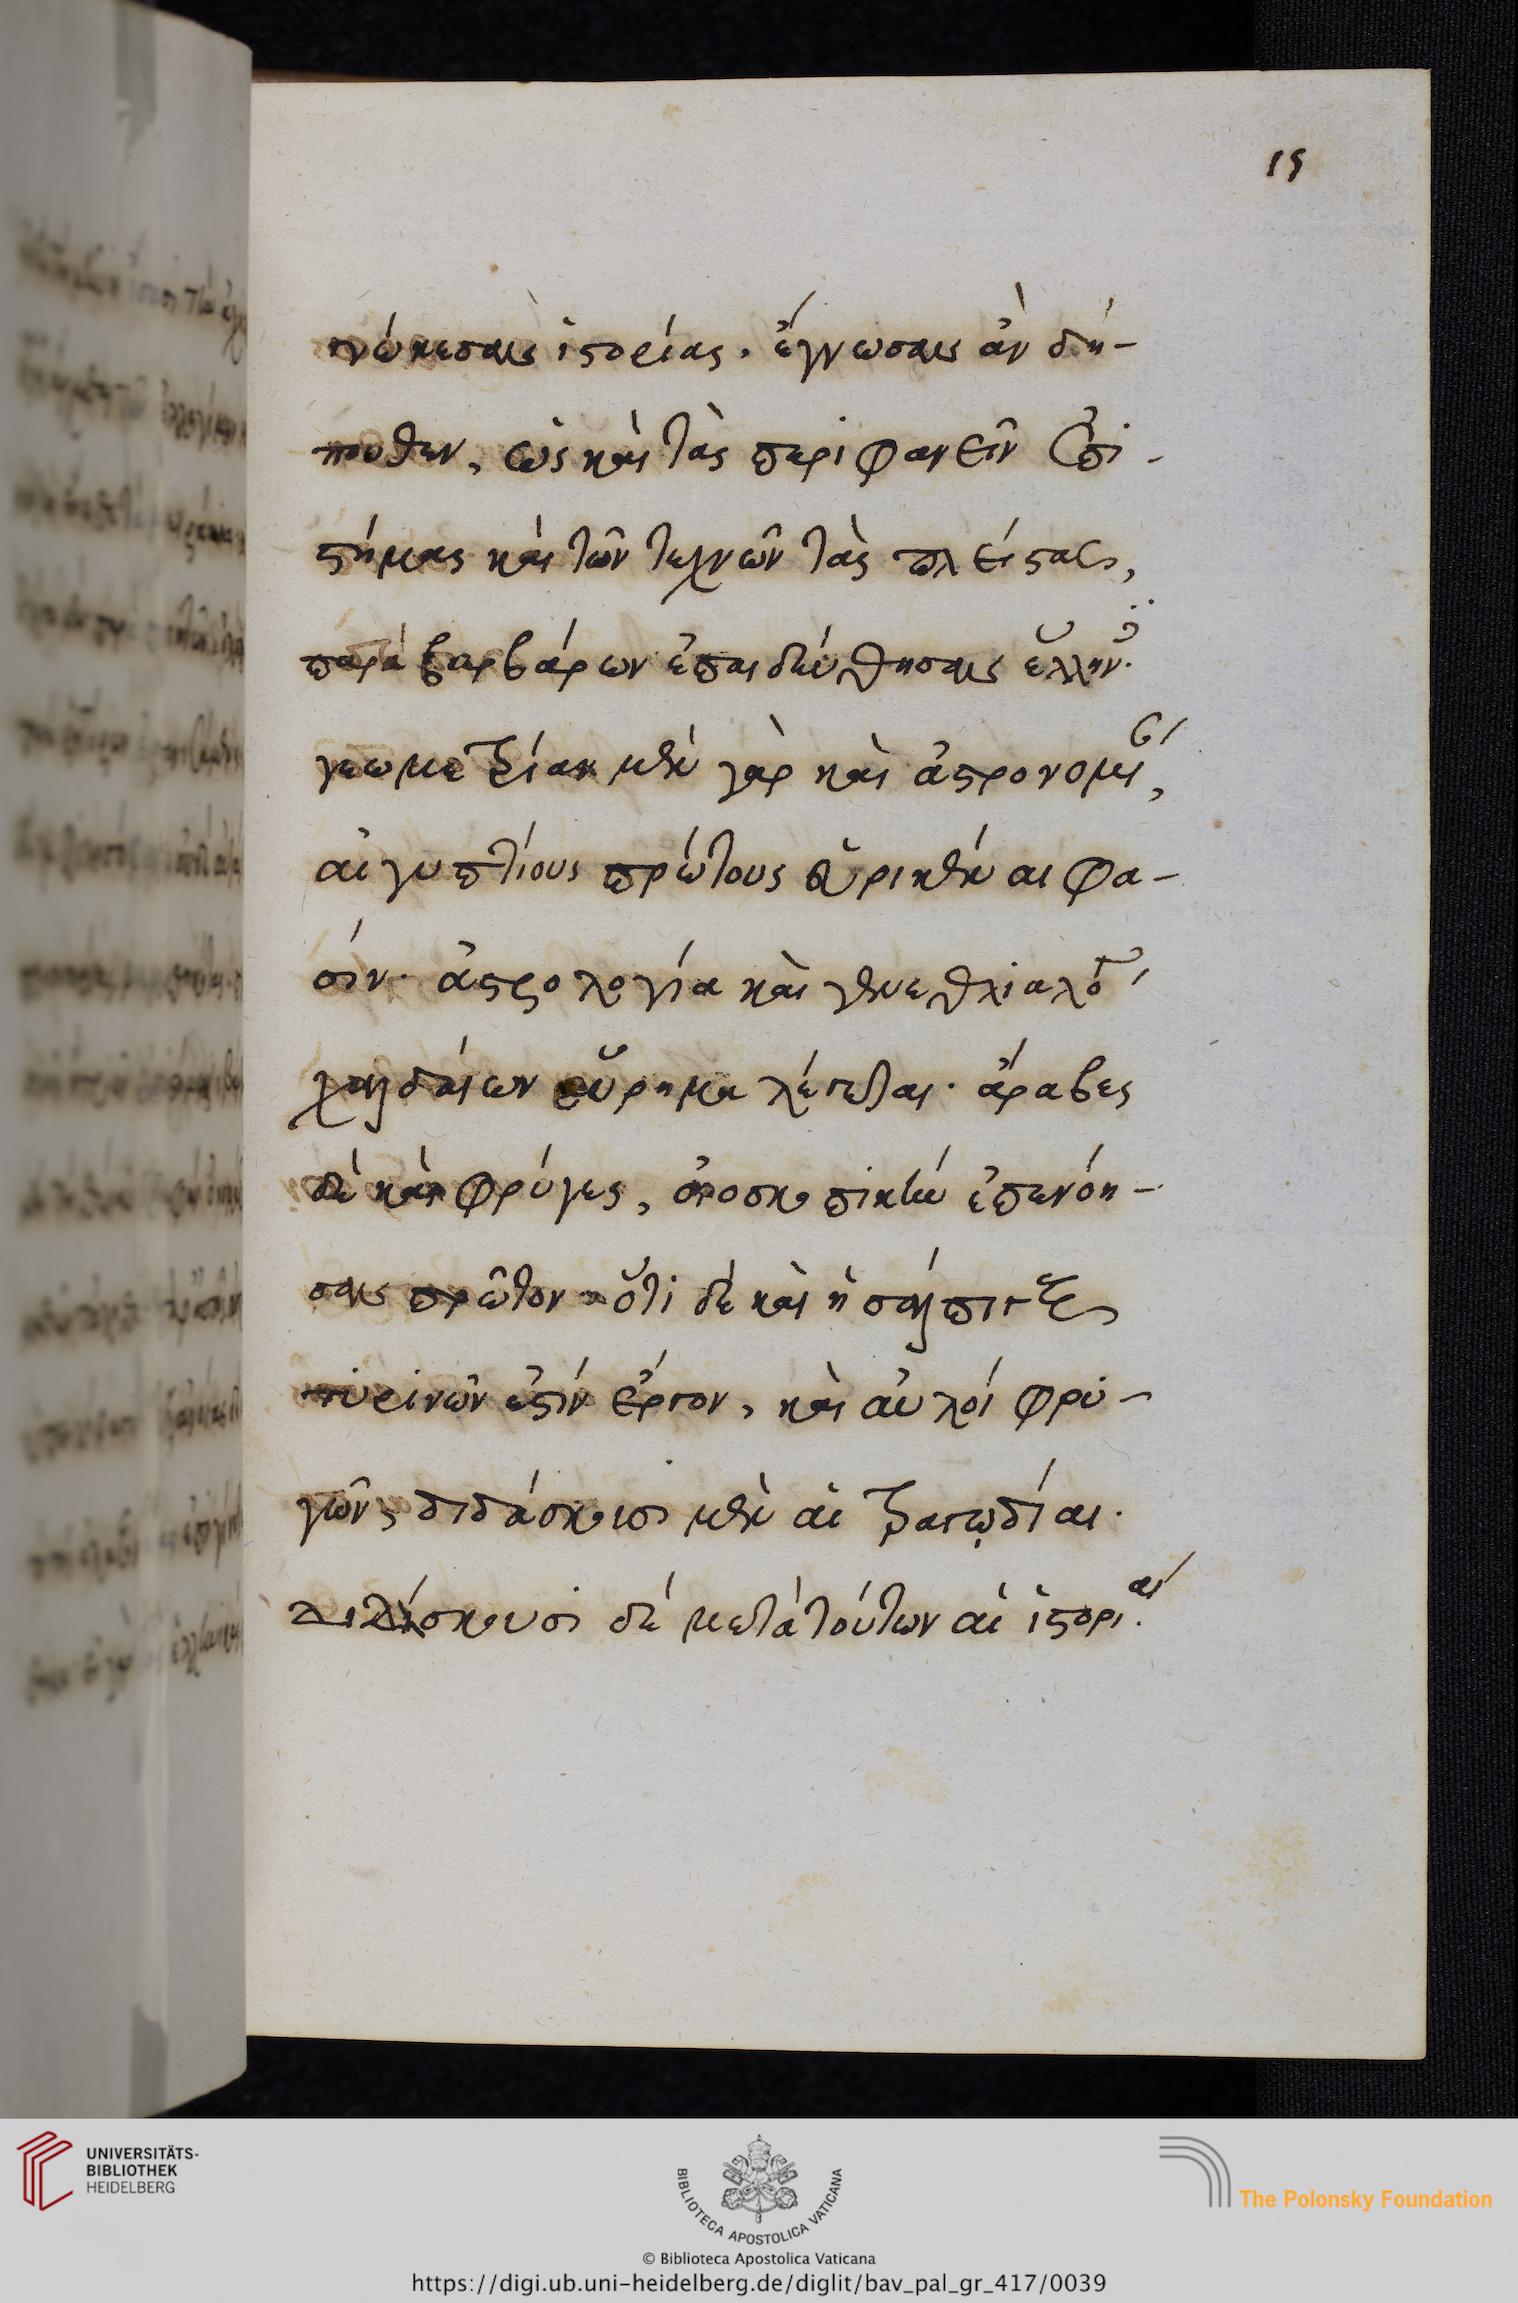 19
γνώκεσαν ἱστορίας. ἔγνωσαν ἂν δή-
πουθεν, ὡς καὶ τὰς περιφανεῖν ἐπι-
στήμας καὶ τῶν τεχνῶν τὰς πλείστας,
παρὰ βαρβάρων ἐπαιδεύθησαν ἕλλην
γεωμετρίαν μὲν γὰρ καὶ ἀστρονομί,
αἰγυπτίους πρώτους εὑρηκέναι φα-
σίν. ἀστρολογία καὶ γενεθλιαλο
χαλδαίων εὕρημα λέγεται. ἄραβες
δὲ καὶ φρύγες, οἰοσκοπικὴν ἐπενόη-
σαν πρῶτον ὅτι δὲ καὶ ἡ σάλπιγξ
τυρινῶν ἐστὶν ἔργον, καὶ αὐλοί φρυ-
γῶν, διδάσκουσι μὲν αἱ τραγῳδίαι.
διδάσκουσι δὲ μετὰ τούτων αἱ ἱστορίαι.
UNIVERSITÄTS-
BIBLIOTHEK
HEIDELBERG
BIBLIOTECA APOSTOLICA VATICANA
The Polonsky Foundation
© Biblioteca Apostolica Vaticana
https://digi.ub.uni-heidelberg.de/diglit/bav_pal_gr_417/0039